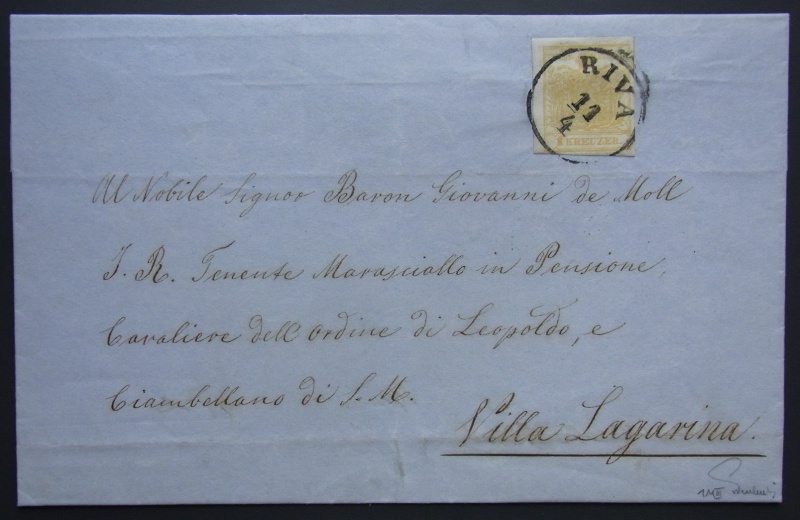 RIVA
11
4
1 KREUZER
Al Nobile Signor Baron Giovanni de Moll
I. R. Tenente Marasciallo in Pensione,
Cavaliere dell'Ordine di Leopoldo, e
Ciambellano di S. M.
Villa Lagarina.